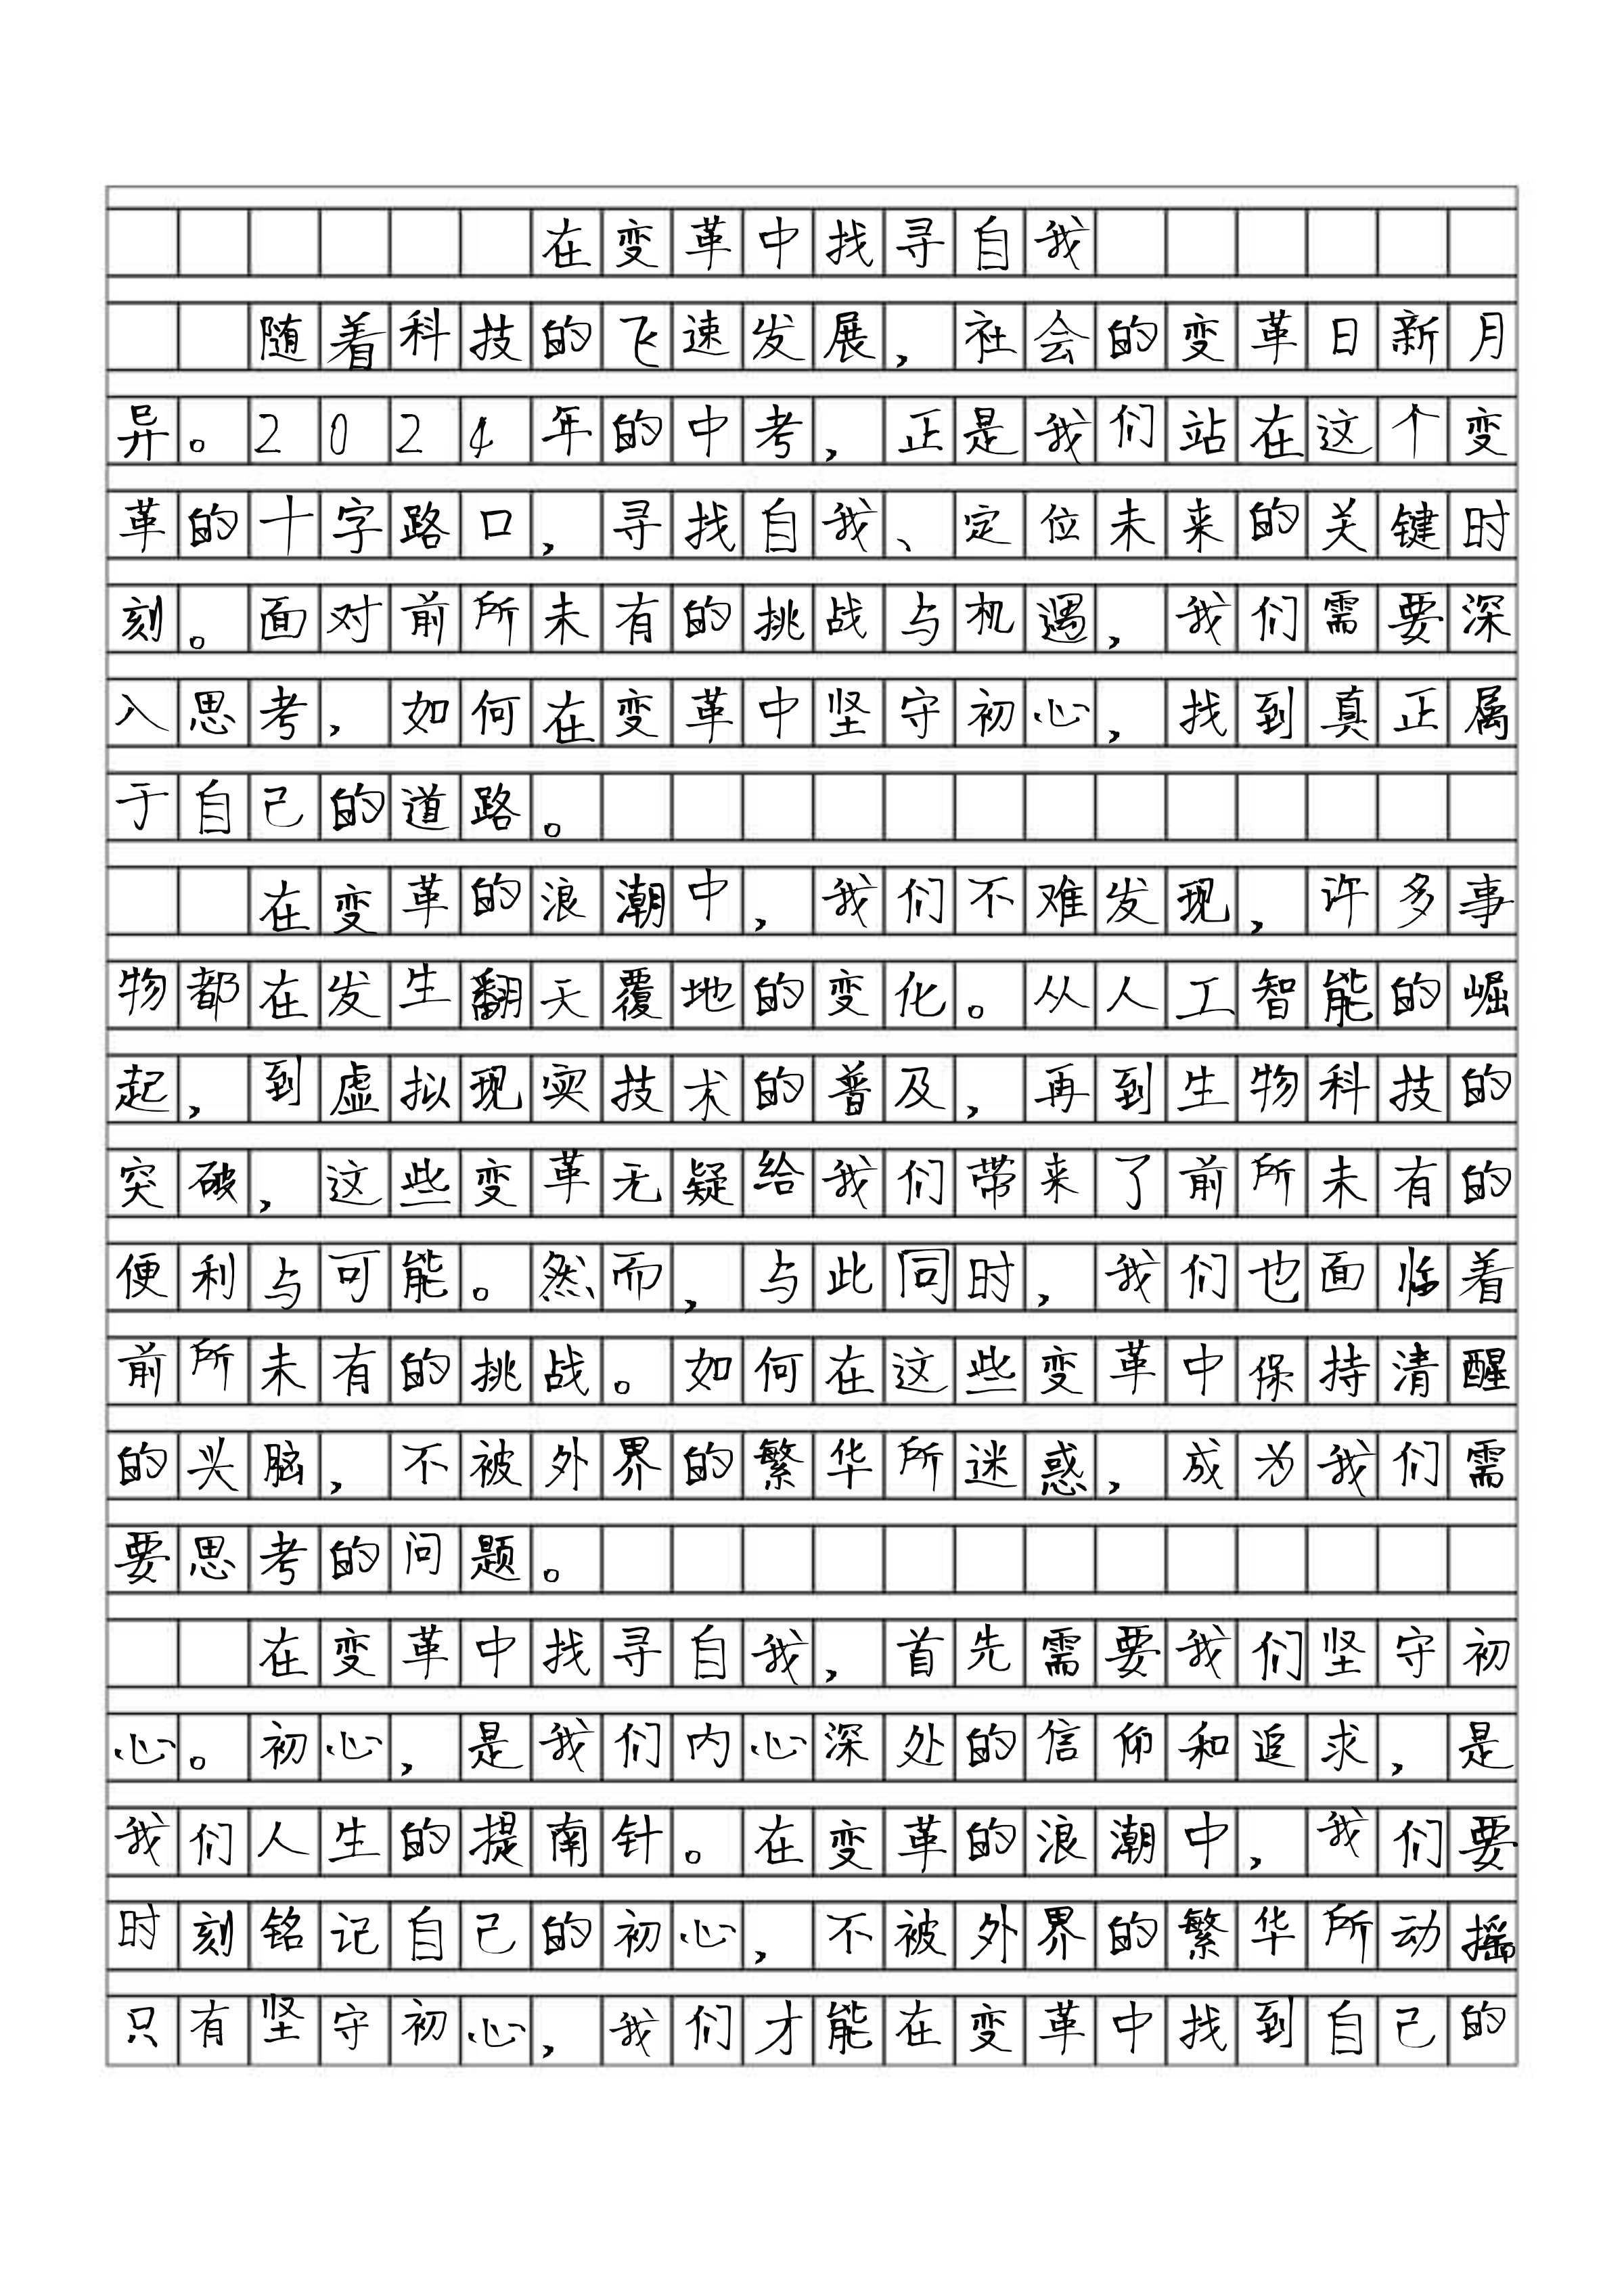 在变革中找寻自我
随着科技的飞速发展，社会的变革日新月
异。2024年的中考，正是我们站在这个变
革的十字路口，寻找自我、定位未来的关键时
刻。面对前所未有的挑战与机遇，我们需要深
入思考，如何在变革中坚守初心，找到真正属
于自己的道路。
在变革的浪潮中，我们不难发现，许多事
物都在发生翻天覆地的变化。从人工智能的崛
起，到虚拟现实技术的普及，再到生物科技的
突破，这些变革无疑给我们带来了前所未有的
便利与可能。然而，与此同时，我们也面临着
前所未有的挑战。如何在这些变革中保持清醒
的头脑，不被外界的繁华所迷惑，成为我们需
要思考的问题。
在变革中找寻自我，首先需要我们坚守初
心。初心，是我们内心深处的信仰和追求，是
我们人生的提南针。在变革的浪潮中，我们要
时刻铭记自己的初心，不被外界的繁华所动摇。
只有坚守初心，我们才能在变革中找到自己的